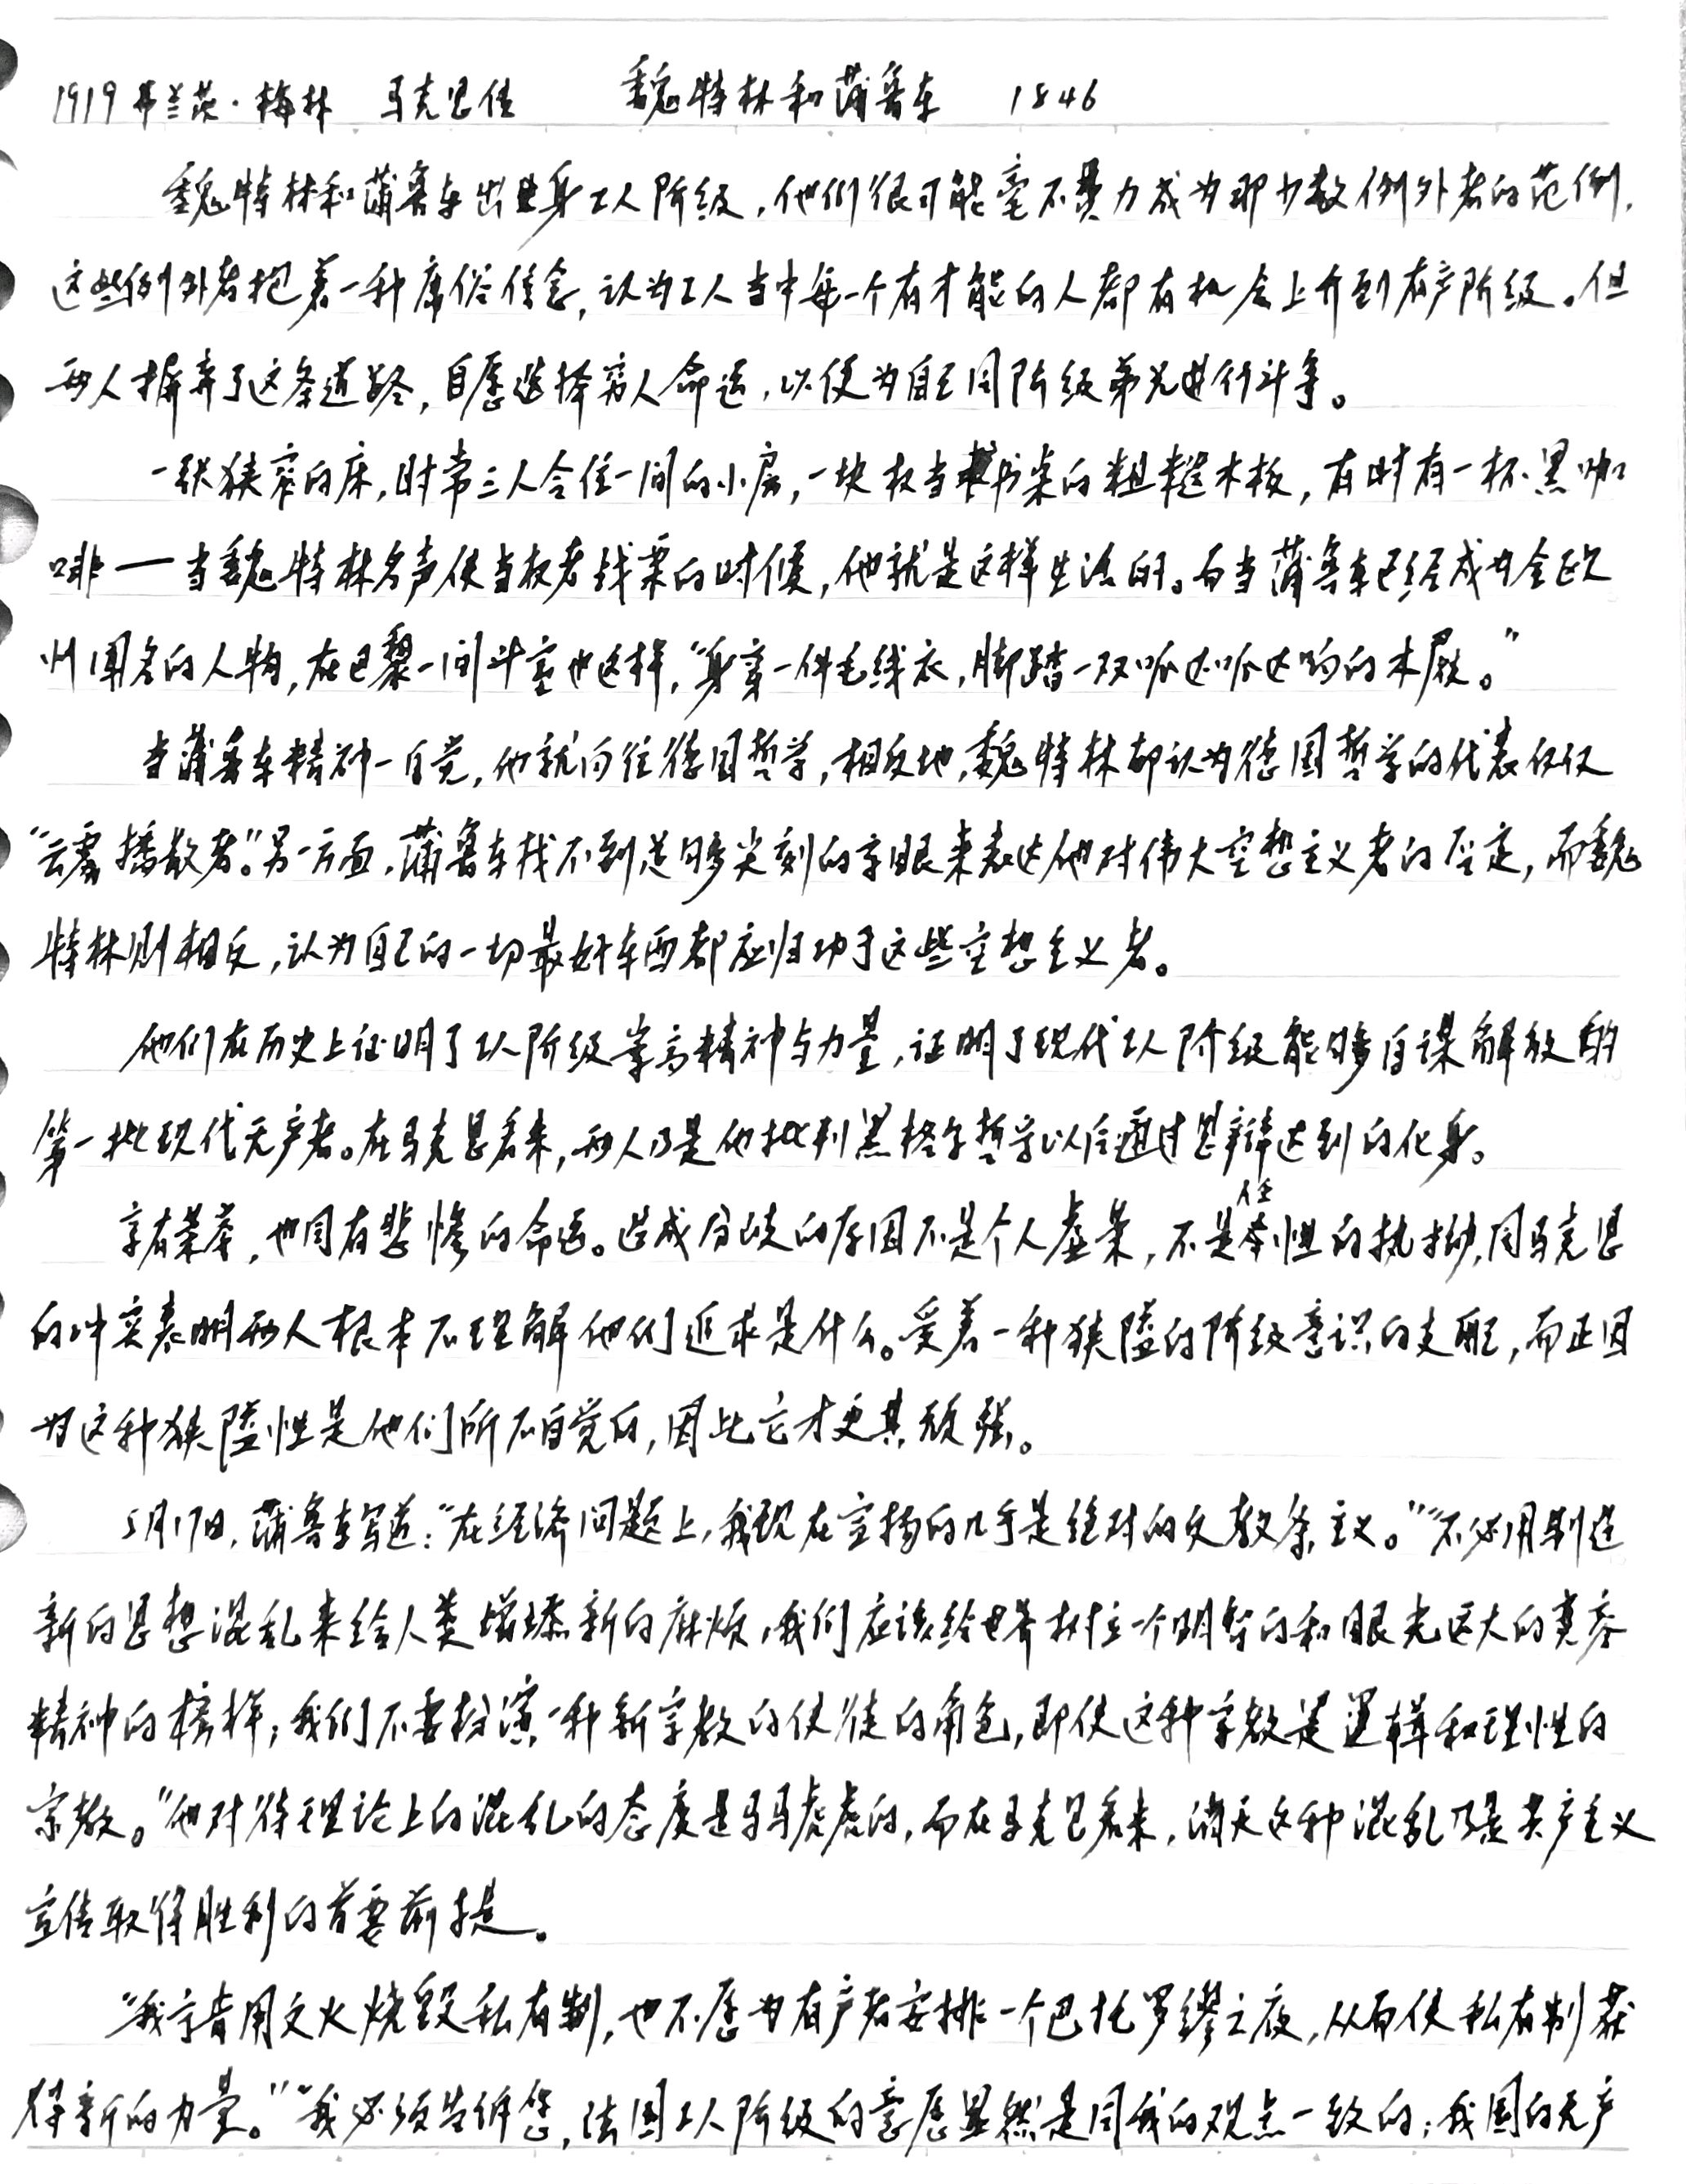 1919 弗兰茨·梅林 马克思传 魏特林和蒲鲁东 1846
魏特林和蒲鲁东出生身工人阶级，他们很可能毫不费力成为那少数例外者的范例，
这些例外者抱着一种庸俗信念，认为工人当中每一个有才能的人都有机会上升到有产阶级。但
两人摒弃了这条道路，自愿选择穷人命运，以便为自己同阶级弟兄进行斗争。
一张狭窄的床，时常三人合住一间的小房，一块权当书桌的粗糙木板，有时有一杯黑咖
啡——当魏特林名声使当权者战栗的时候，他就是这样生活的。而当蒲鲁东已经成为全欧
州闻名的人物，在巴黎一间斗室也这样，“身穿一件毛绒衣，脚踏一双呱达呱达响的木屐。”
当蒲鲁东精神一自觉，他就向往德国哲学，相反地，魏特林却认为德国哲学的代表仅仅
“云雾播散者”。另一方面，蒲鲁东找不到足够尖刻的字眼来表达他对伟大空想主义者的否定，而魏
特林则相反，认为自己的一切最好东西都应归功于这些空想主义者。
他们在历史上证明了工人阶级崇高精神与力量，证明了现代工人阶级能够自谋解放的
第一批现代无产者。在马克思看来，两人乃是他批判黑格尔哲学以后通过思辩达到的化身。
享有荣幸，也同有悲惨的命运。造成分歧的原因不是个人虚荣，不是任性的执拗，同马克思
的冲突表明两人根本不理解他们追求是什么。受着一种狭隘的阶级意识的支配，而正因
为这种狭隘性是他们所不自觉的，因此它才更其顽强。
5月17日，蒲鲁东写道：“在经济问题上，我现在宣扬的几乎是绝对的反教条主义。”“不必用制造
新的思想混乱来给人类增添新的麻烦，我们应该给世界树立一个明智的和眼光远大的宽容
精神的榜样；我们不要扮演一种新宗教的使徒的角色，即使这种宗教是逻辑和理性的
宗教。”他对待理论上的混乱的态度是马马虎虎的，而在马克思看来，消灭这种混乱乃是共产主义
宣传取得胜利的首要前提。
“我宁肯用文火烧毁私有制，也不愿为有产者安排一个巴托罗缪之夜，从而使私有制获
得新的力量。”“我必须告诉您，法国工人阶级的意愿显然是同我的观点一致的；我国的无产